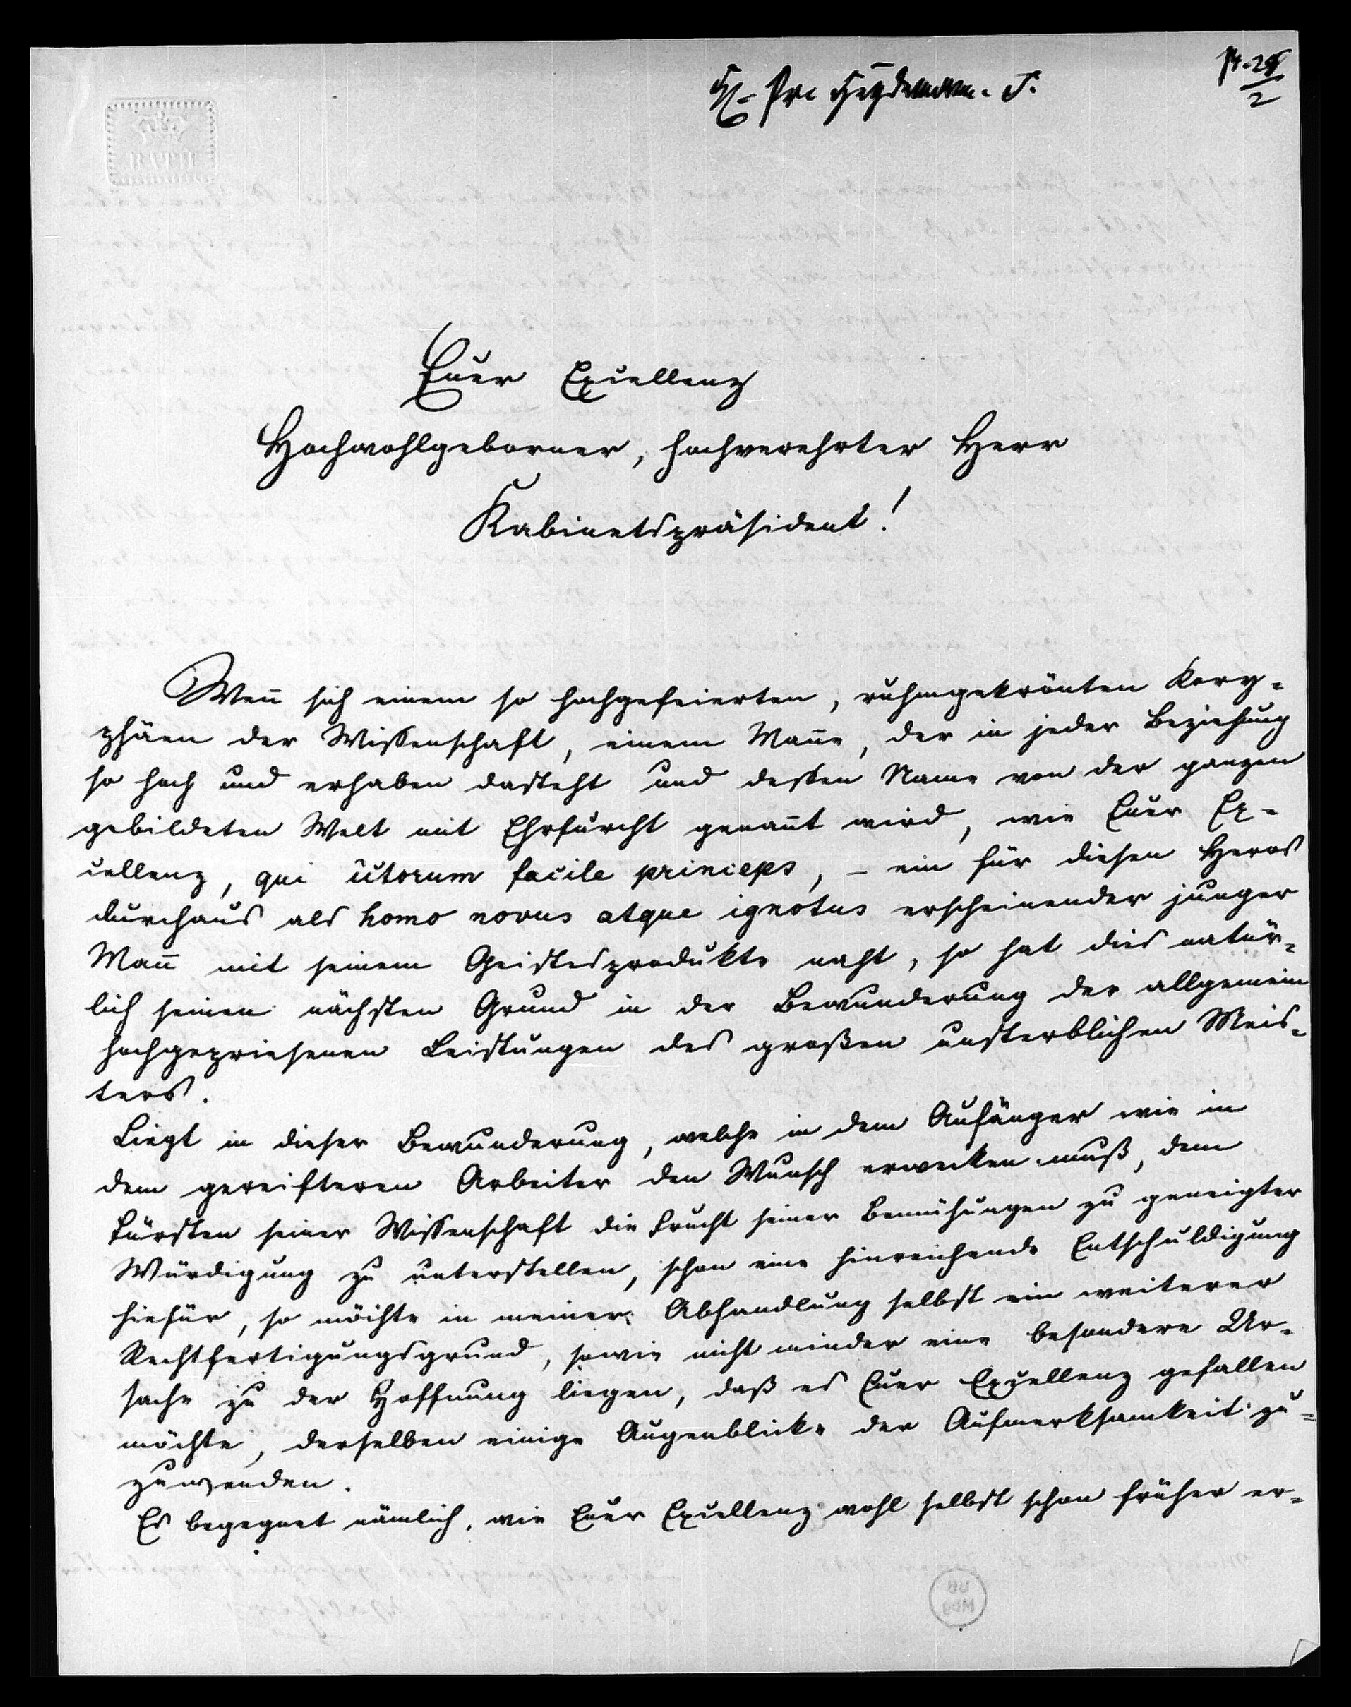 Pr. Heydemann. J.
Euer Excellenz
Hochwohlgeborner, hochverehrter Herr
Kabinetspräsident!
Wen̄ sich einem so hochgefeierten, ruhmgekrönten Kory-
phäen der Wissenschaft, einem Man̄e, der in jeder Beziehung
so hoch und erhaben dasteht und dessen Name von der ganzen
gebildeten Welt mit Ehrfurcht genan̄t wird, wie Euer Ex-
cellenz, qui ictorum facile princeps, – ein für diesen Heros
durchaus als homo novus atque ignotus erscheinender junger
Man̄ mit seinem Geistesprodukte naht, so hat dies natür-
lich seinen nächsten Grund in der Bewunderung der allgemein
hochgepriesenen Leistungen des großen unsterblichen Meis-
ters.
Liegt in dieser Bewunderung, welche in dem Anfänger wie in
dem gereifteren Arbeiter den Wunsch erwecken muß, dem
Fürsten seiner Wissenschaft die Frucht seiner Bemühungen zu geneigter
Würdigung zu unterstellen, schon eine hinreichende Entschuldigung
hiefür, so möchte in meiner Abhandlung selbst ein weiterer
Rechtfertigungsgrund, sowie nicht minder eine besondere Ur-
sache zu der Hoffnung liegen, daß es Euer Excellenz gefallen
möchte, derselben einige Augenblicke der Aufmerksamkeit zu-
zuwenden.
Es begegnet nämlich, wie Euer Excellenz wohl selbst schon früher er-